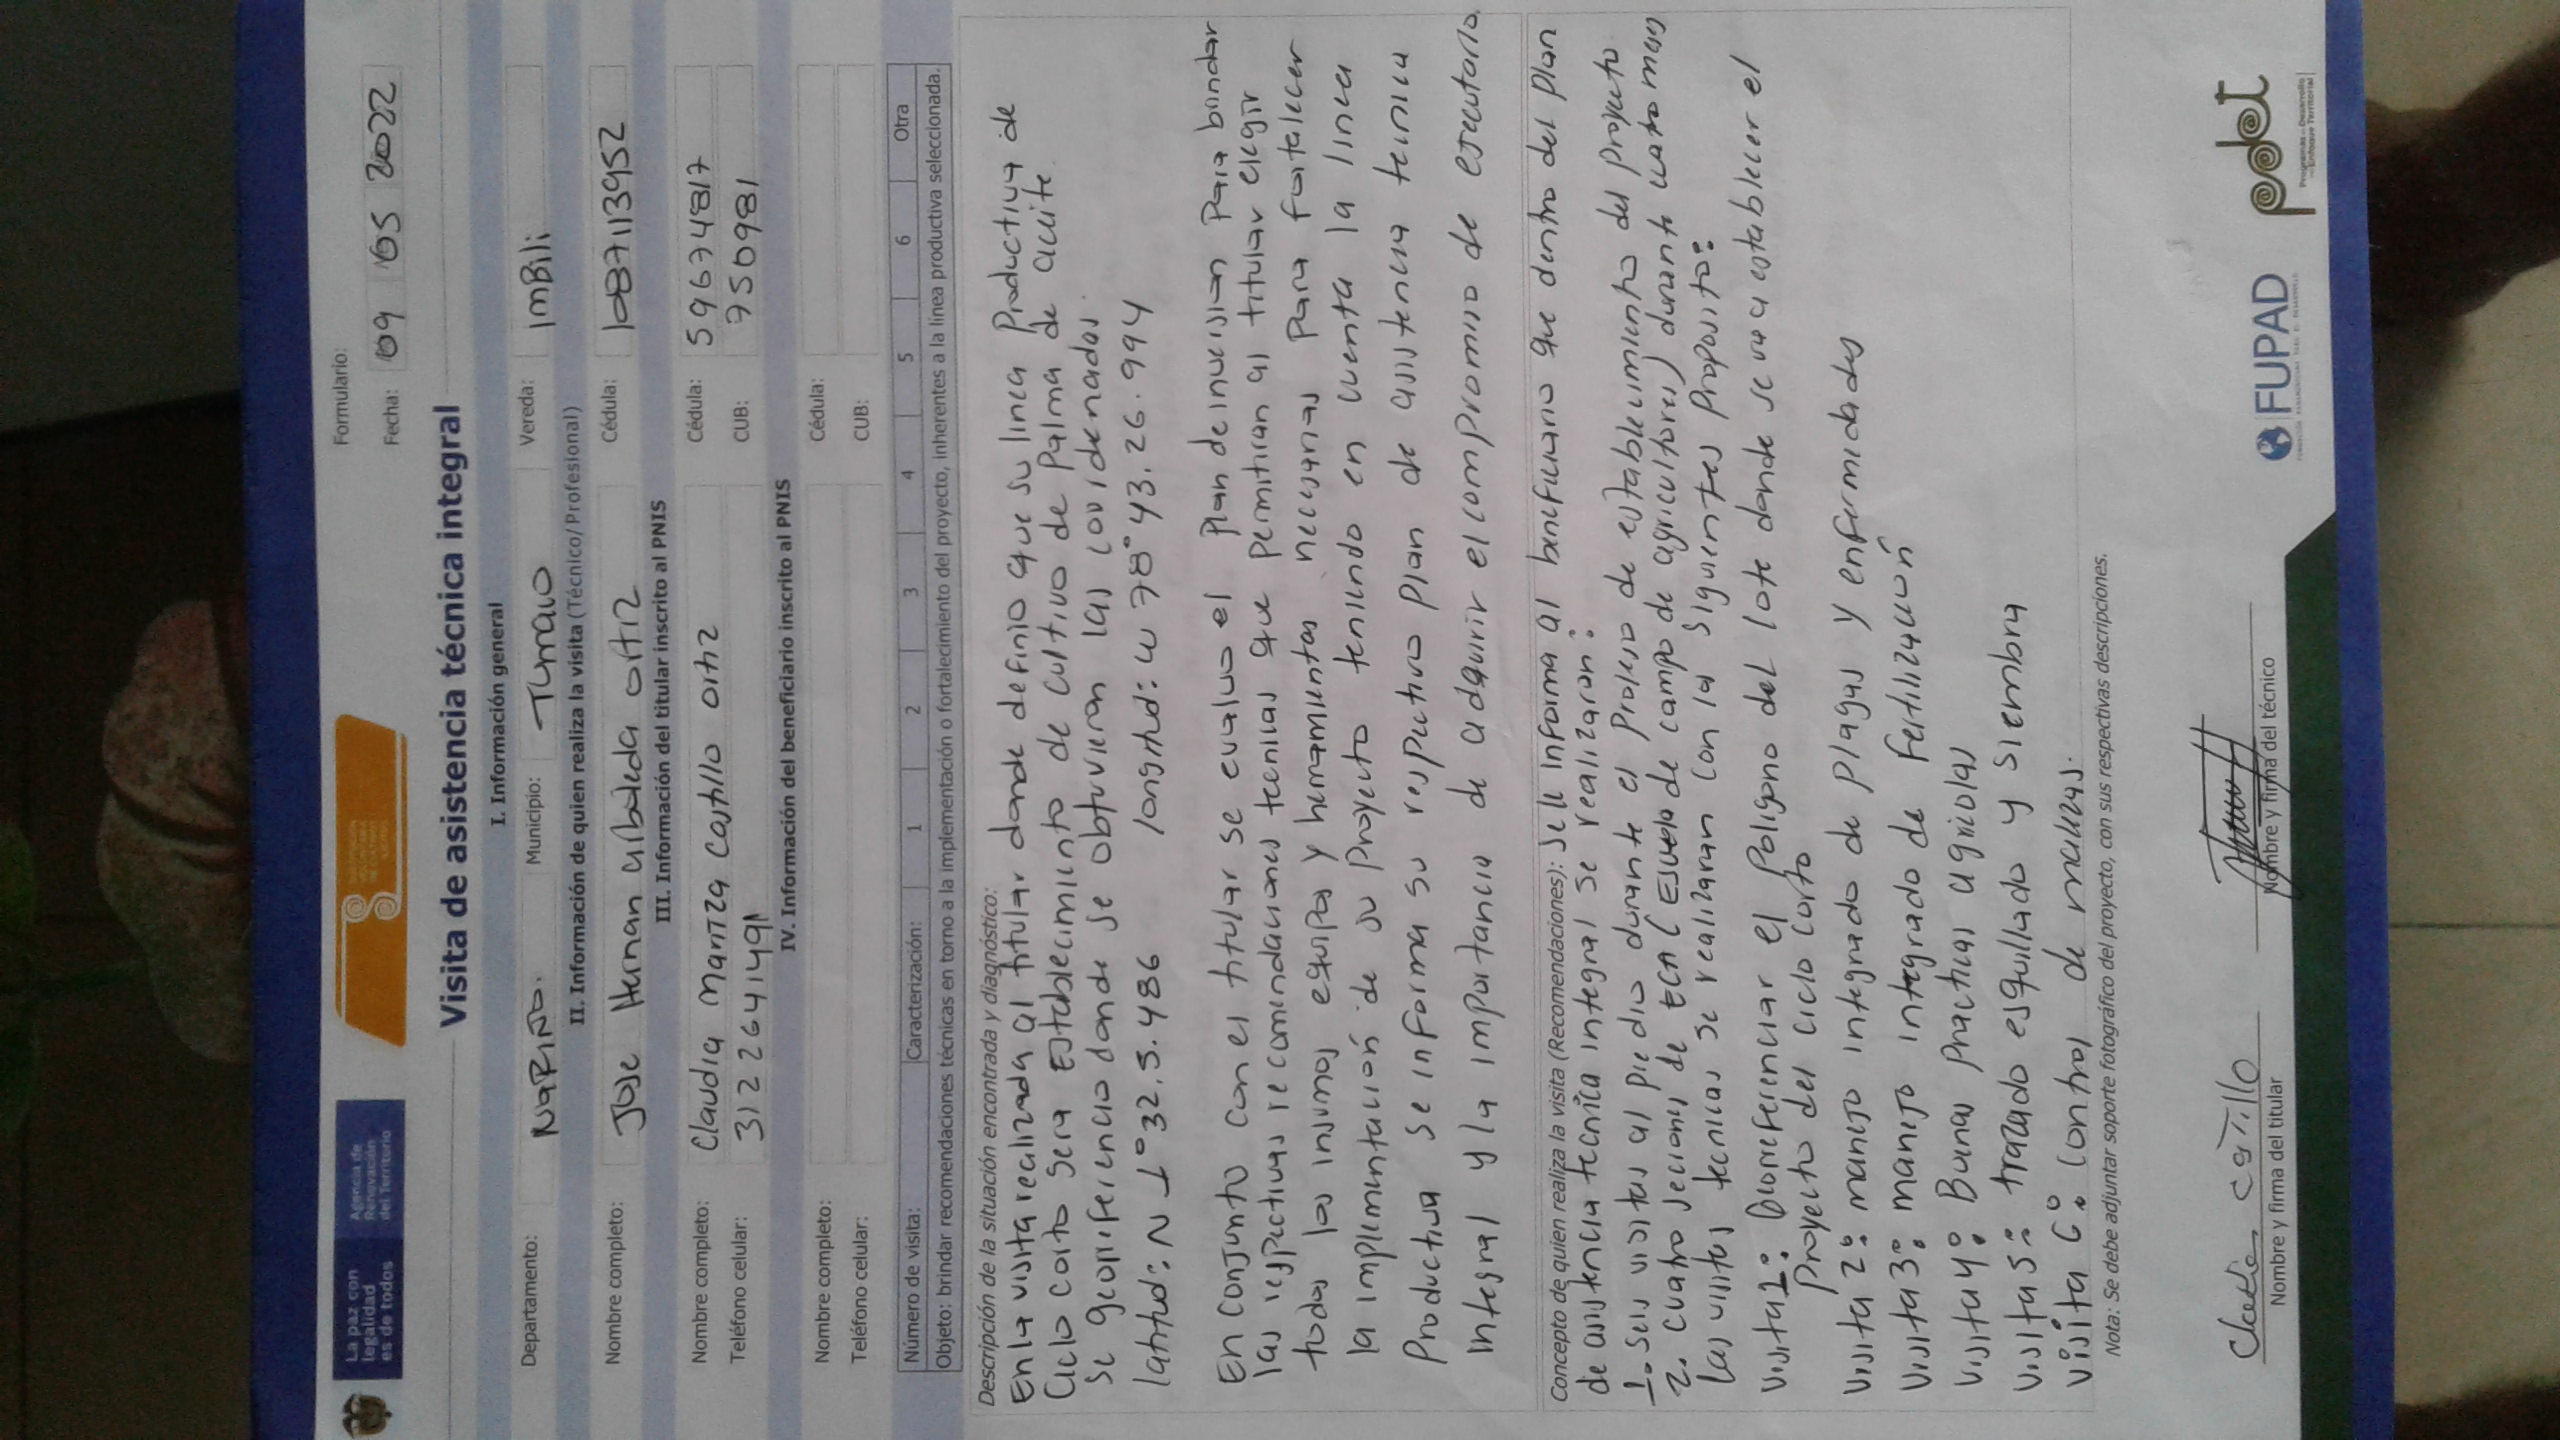 La paz con
legalidad
es de todos
Agencia de
Renovación
del Territorio
Formulario:
Fecha: 09 05 2022
Visita de asistencia técnica integral
I. Información general
Departamento: NaRIÑO. Municipio: Tumaco Vereda: imBili
II. Información de quien realiza la visita (Técnico/Profesional)
Nombre completo: Jose Hernan arboleda ortiz Cédula: 1087113952
III. Información del titular inscrito al PNIS
Nombre completo: Claudia Maritza castillo ortiz Cédula: 59674817
Teléfono celular: 3122641491 CUB: 750981
IV. Información del beneficiario inscrito al PNIS
Nombre completo: Cédula:
Teléfono celular: CUB:
Número de visita: Caracterización: 1 2 3 4 5 6 Otra
Objeto: brindar recomendaciones técnicas en torno a la implementación o fortalecimiento del proyecto, inherentes a la línea productiva seleccionada.
Descripción de la situación encontrada y diagnóstico:
En la visita realizada al titular donde definio que su linea Productiva de
Ciclo corto sera Establecimiento de cultivo de Palma de aceite
Se georeferencio donde se obtuvieran las coordenadas.
latitud: N 1° 32. 5. 486 longitud: w 78° 43. 26. 994
En conjunto con el titular se evaluo el plan de inversion Para brindar
las respectivas recomendaciones tecnicas que permitiran al titular elegir
todos los insumos equipos y herramientas necesarias para fortalecer
la implementación de su proyecto teniendo en cuenta la linea
Productiva se informa su respectivo plan de asistencia tecnica
integral y la importancia de adquirir el compromiso de ejecutarlo.
Concepto de quien realiza la visita (Recomendaciones): Se le informa al beneficiario que dentro del plan
de asistencia tecnica integral se realizaran:
1. Seis visitas al predio durante el proceso de establecimiento del proyecto
2. cuatro seciones de ECA (Escuela de campo de agricultores) durante cuatro meses
las visitas tecnicas se realizaran con la siguientes propositos:
visita 1: Georreferenciar el poligono del lote donde se va a establecer el
proyecto del ciclo corto
visita 2: manejo integrado de plagas y enfermedades
visita 3: manejo integrado de fertilización
visita 4: Buenas practicas agricolas
visita 5: trazado esquillado y siembra
visita 6: control de malezas.
Nota: Se debe adjuntar soporte fotográfico del proyecto, con sus respectivas descripciones.
Claudia CasTillo
Nombre y firma del titular
Nombre y firma del técnico
FUPAD
pdet